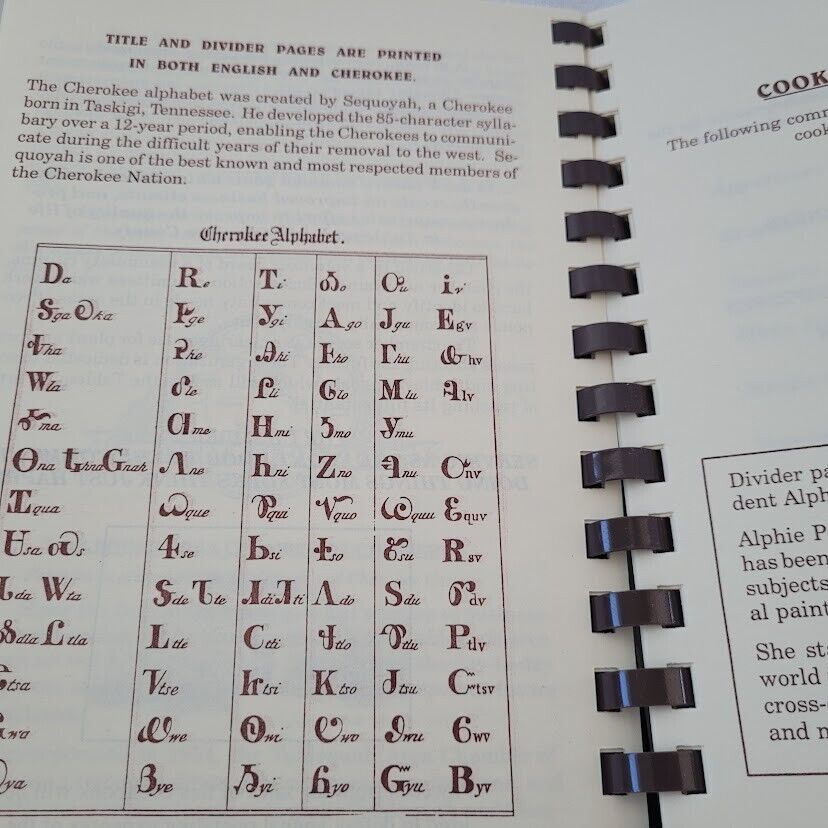 TITLE AND DIVIDER PAGES ARE PRINTED
IN BOTH ENGLISH AND CHEROKEE.
The Cherokee alphabet was created by Sequoyah, a Cherokee
born in Taskigi, Tennessee. He developed the 85-character sylla-
bary over a 12-year period, enabling the Cherokees to communi-
cate during the difficult years of their removal to the west. Se-
quoyah is one of the best known and most respected members of
the Cherokee Nation.
Cherokee Alphabet.
Ꭰa Ꭱe Ꭲi Ꭳo Ꭴu Ꭵv
Ꭶga Ꭷka Ꭸge Ꭹgi Ꭺgo Ꭻgu Ꭼgv
Ꭽha Ꭾhe Ꭿhi Ꮀho Ꮁhu Ꮂhv
Ꮃla Ꮄle Ꮅli Ꮆlo Ꮇlu Ꮈlv
Ꮉma Ꮊme Ꮋmi Ꮌmo Ꮍmu
Ꮎna Ꮏhna Ꮐnah Ꮑne Ꮒni Ꮓno Ꮔnu Ꮕnv
Ꮖqua Ꮗque Ꮘqui Ꮙquo Ꮚquu Ꮛquv
Ꮜsa Ꮝs Ꮞse Ꮟsi Ꮠso Ꮡsu Ꮢsv
Ꮣda Ꮤta Ꮥde Ꮦte Ꮧdi Ꮨti Ꮩdo Ꮪdu Ꮫdv
Ꮬdla Ꮭtla Ꮮtle Ꮯtli Ꮰtlo Ꮱtlu Ꮲtlv
Ꮳtsa Ꮴtse Ꮵtsi Ꮶtso Ꮷtsu Ꮸtsv
Ꮹwa Ꮺwe Ꮻwi Ꮼwo Ꮽwu Ꮾwv
Ꮿya Ᏸye Ᏹyi Ᏺyo Ᏻyu Ᏼyv
COOK
The following
cook
Divider
dent
Alphie P
has been
subjects
al
She
world
cross-
and